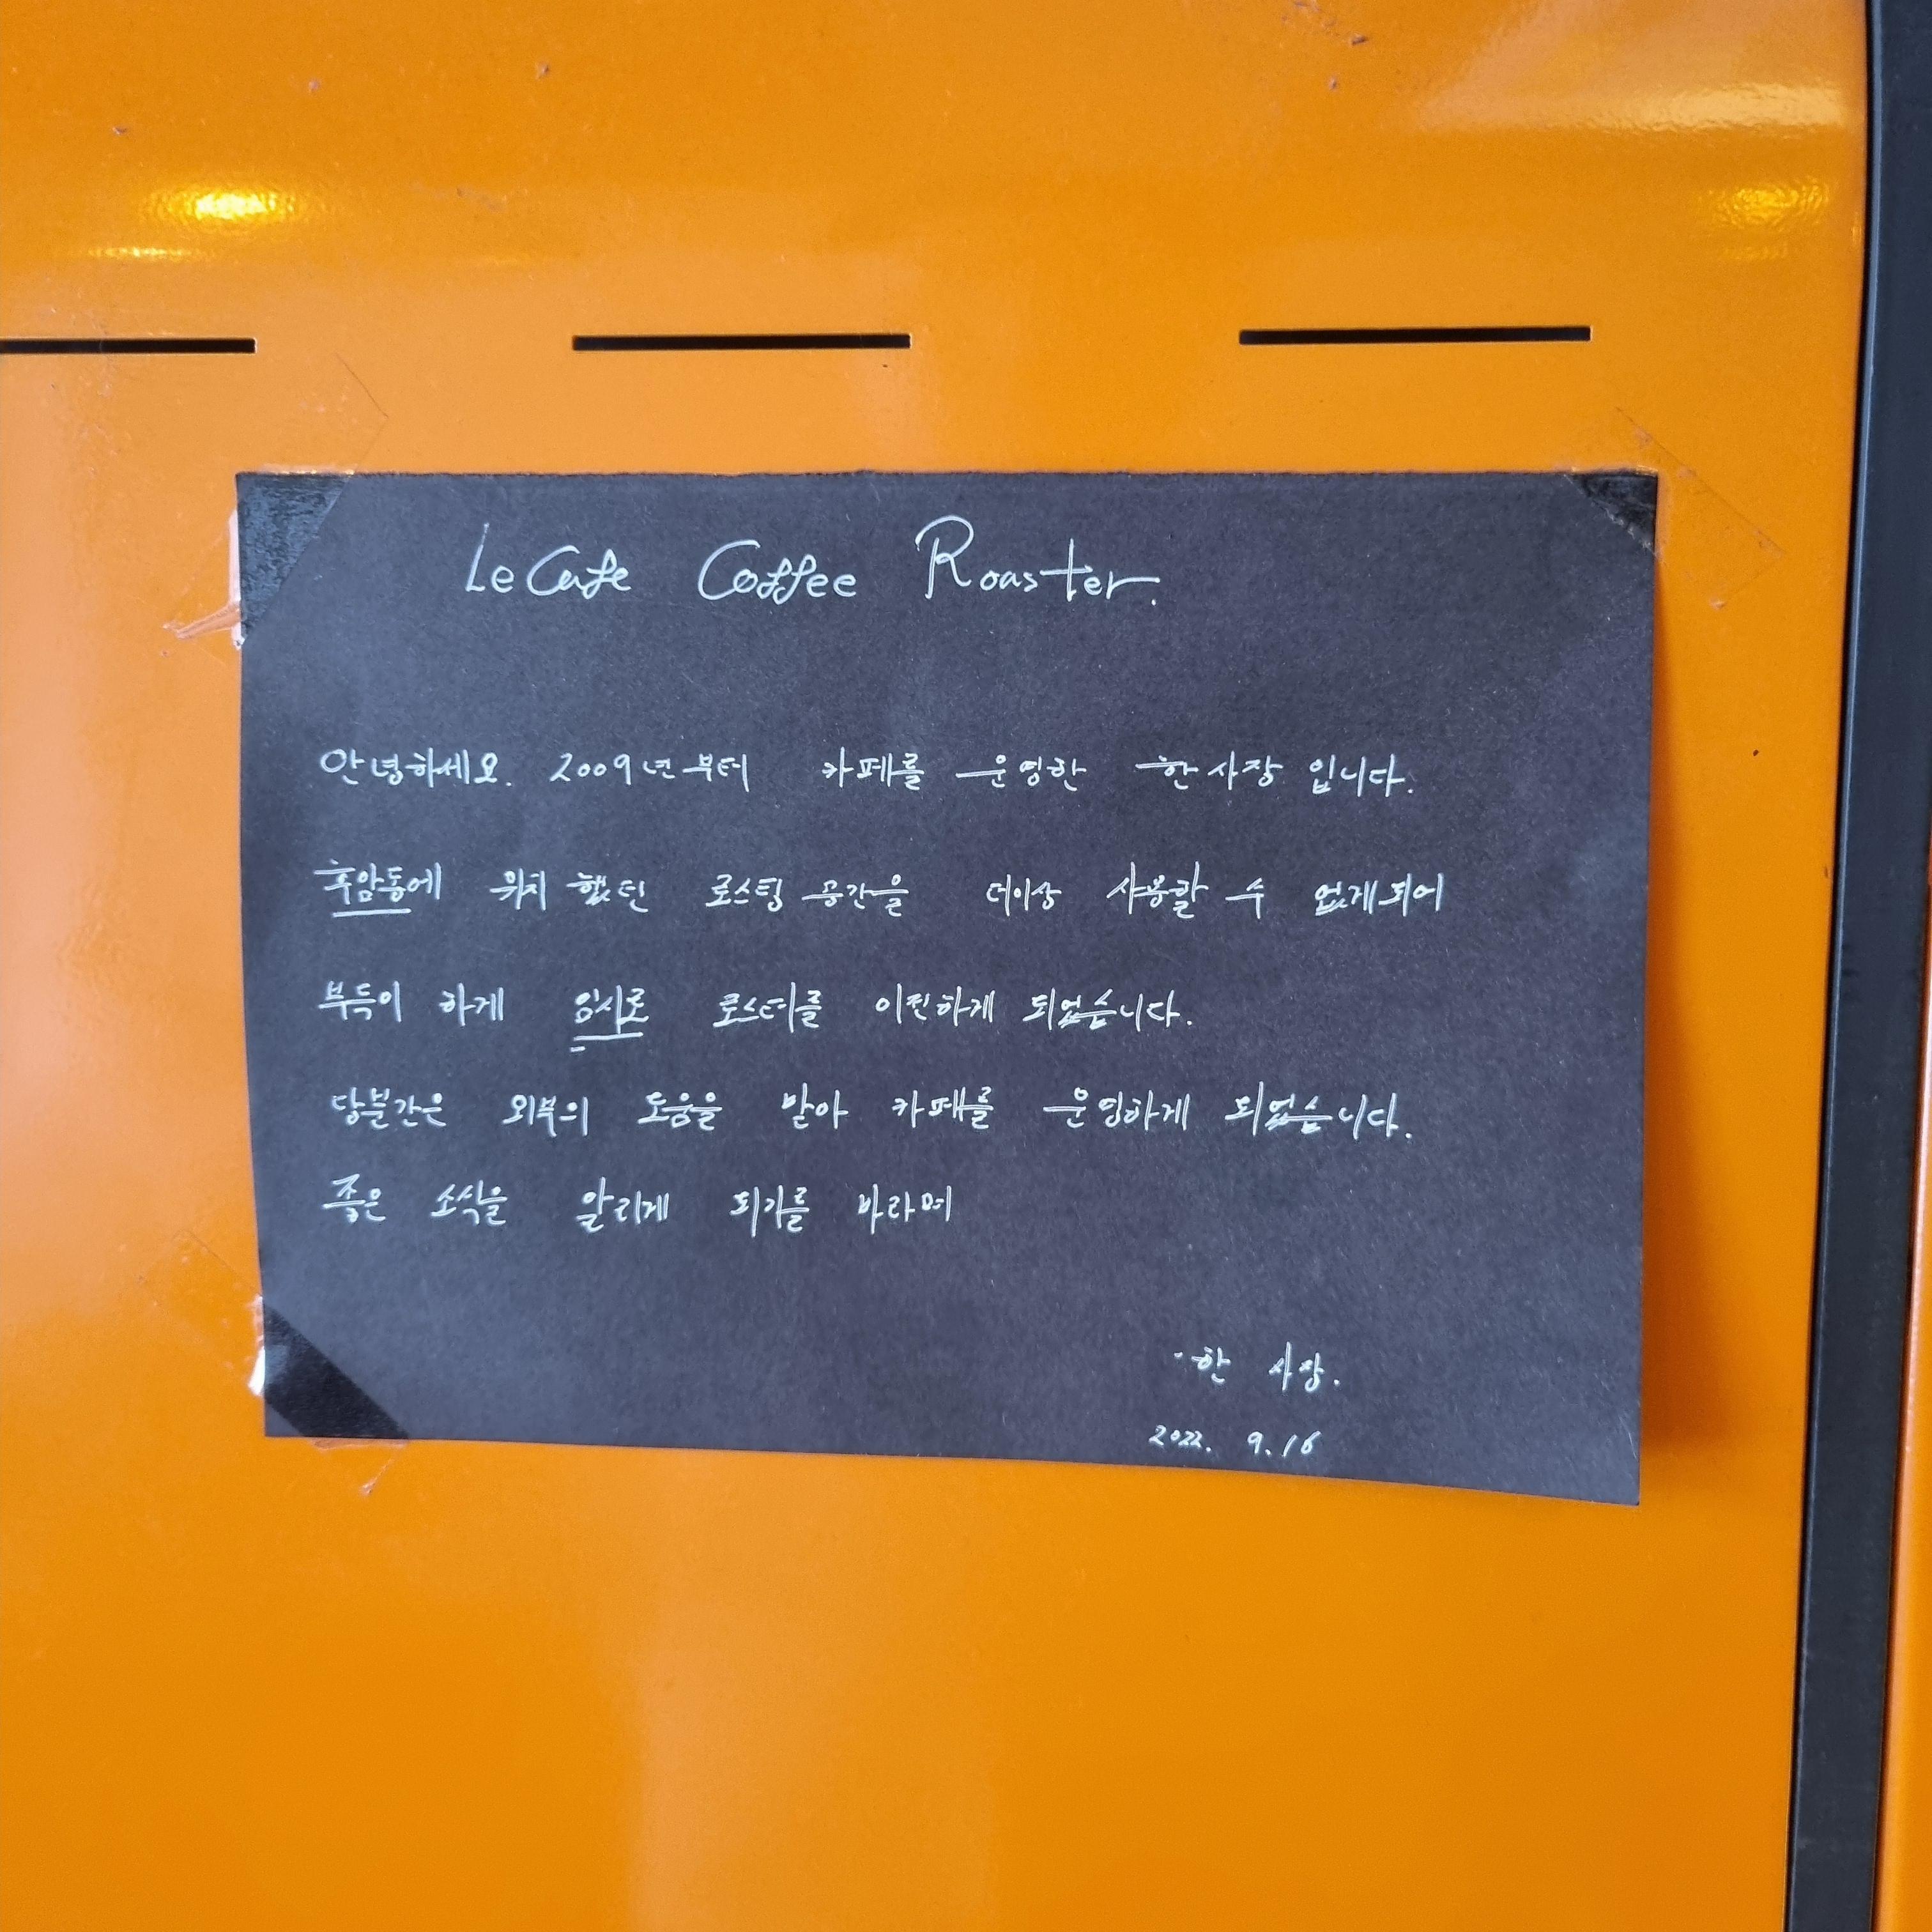 Le Cafe Coffee Roaster.
안녕하세요. 2009년부터 카페를 운영한 한사장 입니다.
후암동에 위치 했던 로스팅 공간을 더이상 사용할 수 없게되어
부득이 하게 임시로 로스터를 이전하게 되었습니다.
당분간은 외부의 도움을 받아 카페를 운영하게 되었습니다.
좋은 소식을 알리게 되기를 바라며
한 사장.
2022. 9. 16